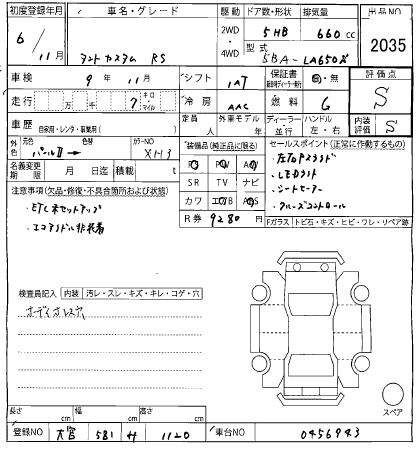 初度登録年月 車名・グレード 駆動 ドア数・形状 排気量 出品NO
6/11月 タントカスタム RS 2WD・4WD 5HB 660cc 2035
型式 5BA-LA650S
車検 9年 11月 シフト IAT 保証書 有・無 評価点
走行 万 千 7 キロ・マイル 冷房 AAC 燃料 G S
車歴 自家用・レンタ・事業用( ) 定員 人 外車モデル 年 ディーラー・並行 ハンドル 左・右 内装評価 S
外色 元色 パールII → 色替 カラーNO X113 装備品(純正品に限る) セールスポイント(正常に作動するもの)
名義変更期限 月 日迄 積載 t
PS PW AW
SR TV ナビ
カワ エアB ABS
R券 9280円
・左右Pスランド
・LEDライト
・シートヒーター
・クルーズコントロール
Fガラス トビ石・キズ・ヒビ・ワレ・リペア跡
注意事項(欠品・修復・不具合箇所および状態)
・ETC未セットアップ
・エコアイドル非装着
検査員記入 内装 汚レ・スレ・キズ・キレ・コゲ・穴
オーディオレス穴
スペア
長さ cm 幅 cm 高さ cm
登録NO 大宮 581 サ 1120 車台NO 0456943